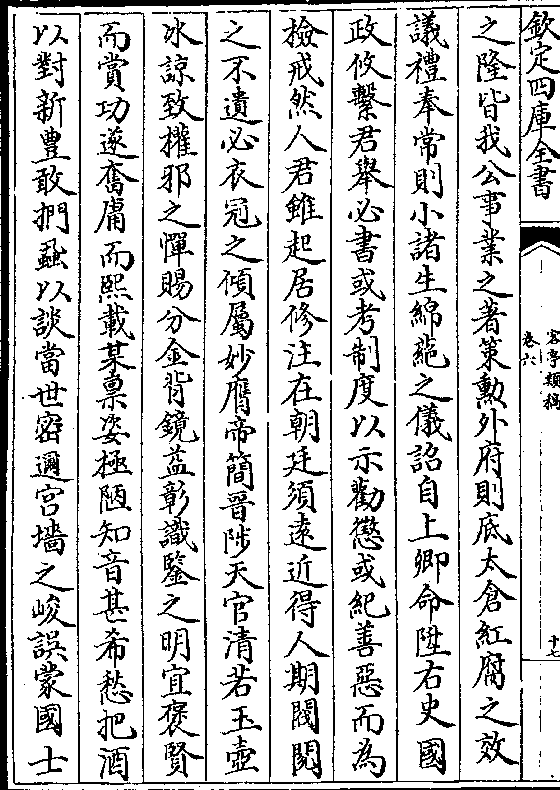 欽定四庫全書
客亭類稿
卷六
十七
之隆皆我公事業之著策勲外府則底太倉紅腐之效
議禮奉常則小諸生綿蕝之儀詔自上卿命陞右史國
政攸繫君舉必書或考制度以示勸懲或紀善惡而為
檢戒然人君雖起居修注在朝廷須遠近得人期閥閱
之不遺必衣冠之傾屬妙膺帝簡晉陟天官清若玉壺
冰諒致擢邪之憚賜分金背鏡益彰識鑒之明宜褒賢
而賞功遂奮庸而熙載某禀姿極陋知音甚希愁把酒
以對新豐敢捫蝨以談當世密邇宮墻之峻誤蒙國士